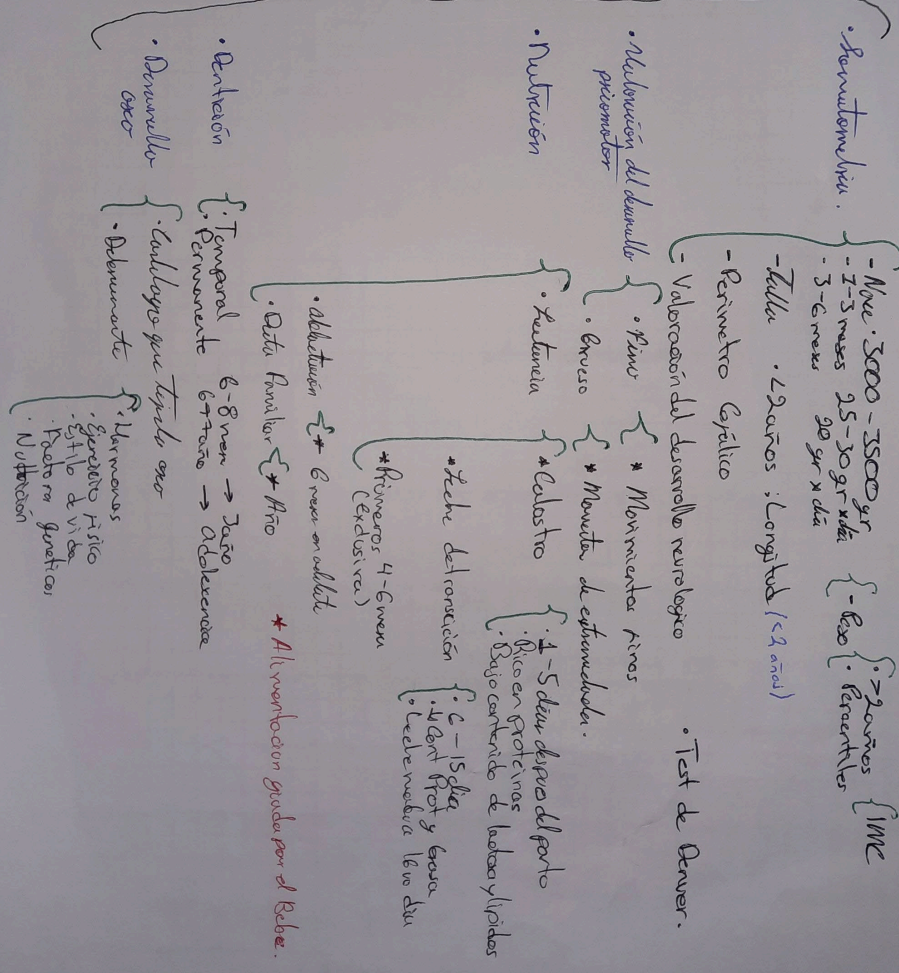 · Somatometria.
- Nace · 3000 - 3500 gr
- 1-3 meses 25-30 gr x día
· 3-6 meses 20 gr x día
- Peso
· > 2 años
· Percentiles
IMC
- Talla · < 2 años : Longitud (< 2 años)
- Perimetro Cefálico
- Valoración del desarrollo neurologico · Test de Denver.
· Valoración del desarrollo
psicomotor
· Fino
* Movimientos finos
· Grueso
* Monitor de extremidades.
· Nutrición
· Lactancia
* Calostro
· 1 - 5 dias despues del parto
· Rico en proteinas
· Bajo contenido de lactosa y lipidos
* Leche de transición
· 6 - 15 dia
· ↓ Cont Prot y Grasa
· Leche madura 16vo dia
* Primeros 4-6 mes
(exclusiva)
· ablactación
* 6 mes en adelate
· Dieta Familiar
* Año
* Alimentacion guiada por el Bebe.
· Dentición
· Temporal 6-8 mes → 3 año
· Permanente 6-7 año → adolescencia
· Desarrollo
oseo
· Cartilago que tejido oseo
· Determinante
· Hormonas
· Ejercicio fisico
· Estilo de vida
· Factora geneticos
· Nutrición